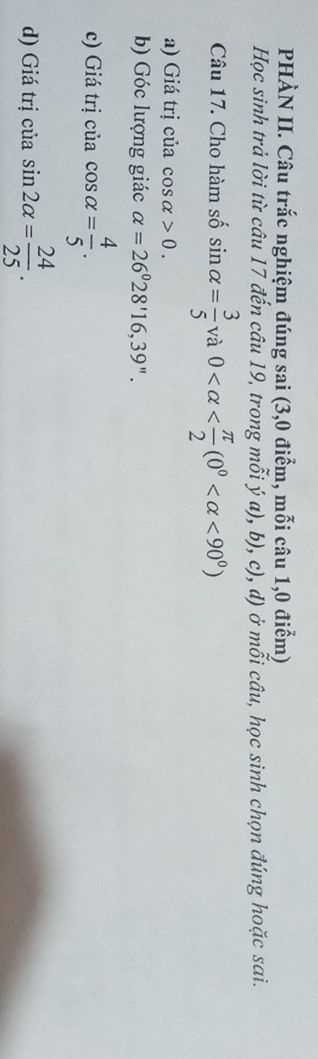 PHẦN II. Câu trắc nghiệm đúng sai (3,0 điểm, mỗi câu 1,0 điểm)
Học sinh trả lời từ câu 17 đến câu 19, trong mỗi ý a), b), c), d) ở mỗi câu, học sinh chọn đúng hoặc sai.
Câu 17. Cho hàm số sin α = 3/5 và 0 < α < π/2 (0⁰ < α < 90⁰)
a) Giá trị của cos α > 0.
b) Góc lượng giác α = 26⁰28'16,39".
c) Giá trị của cos α = 4/5.
d) Giá trị của sin 2α = 24/25.